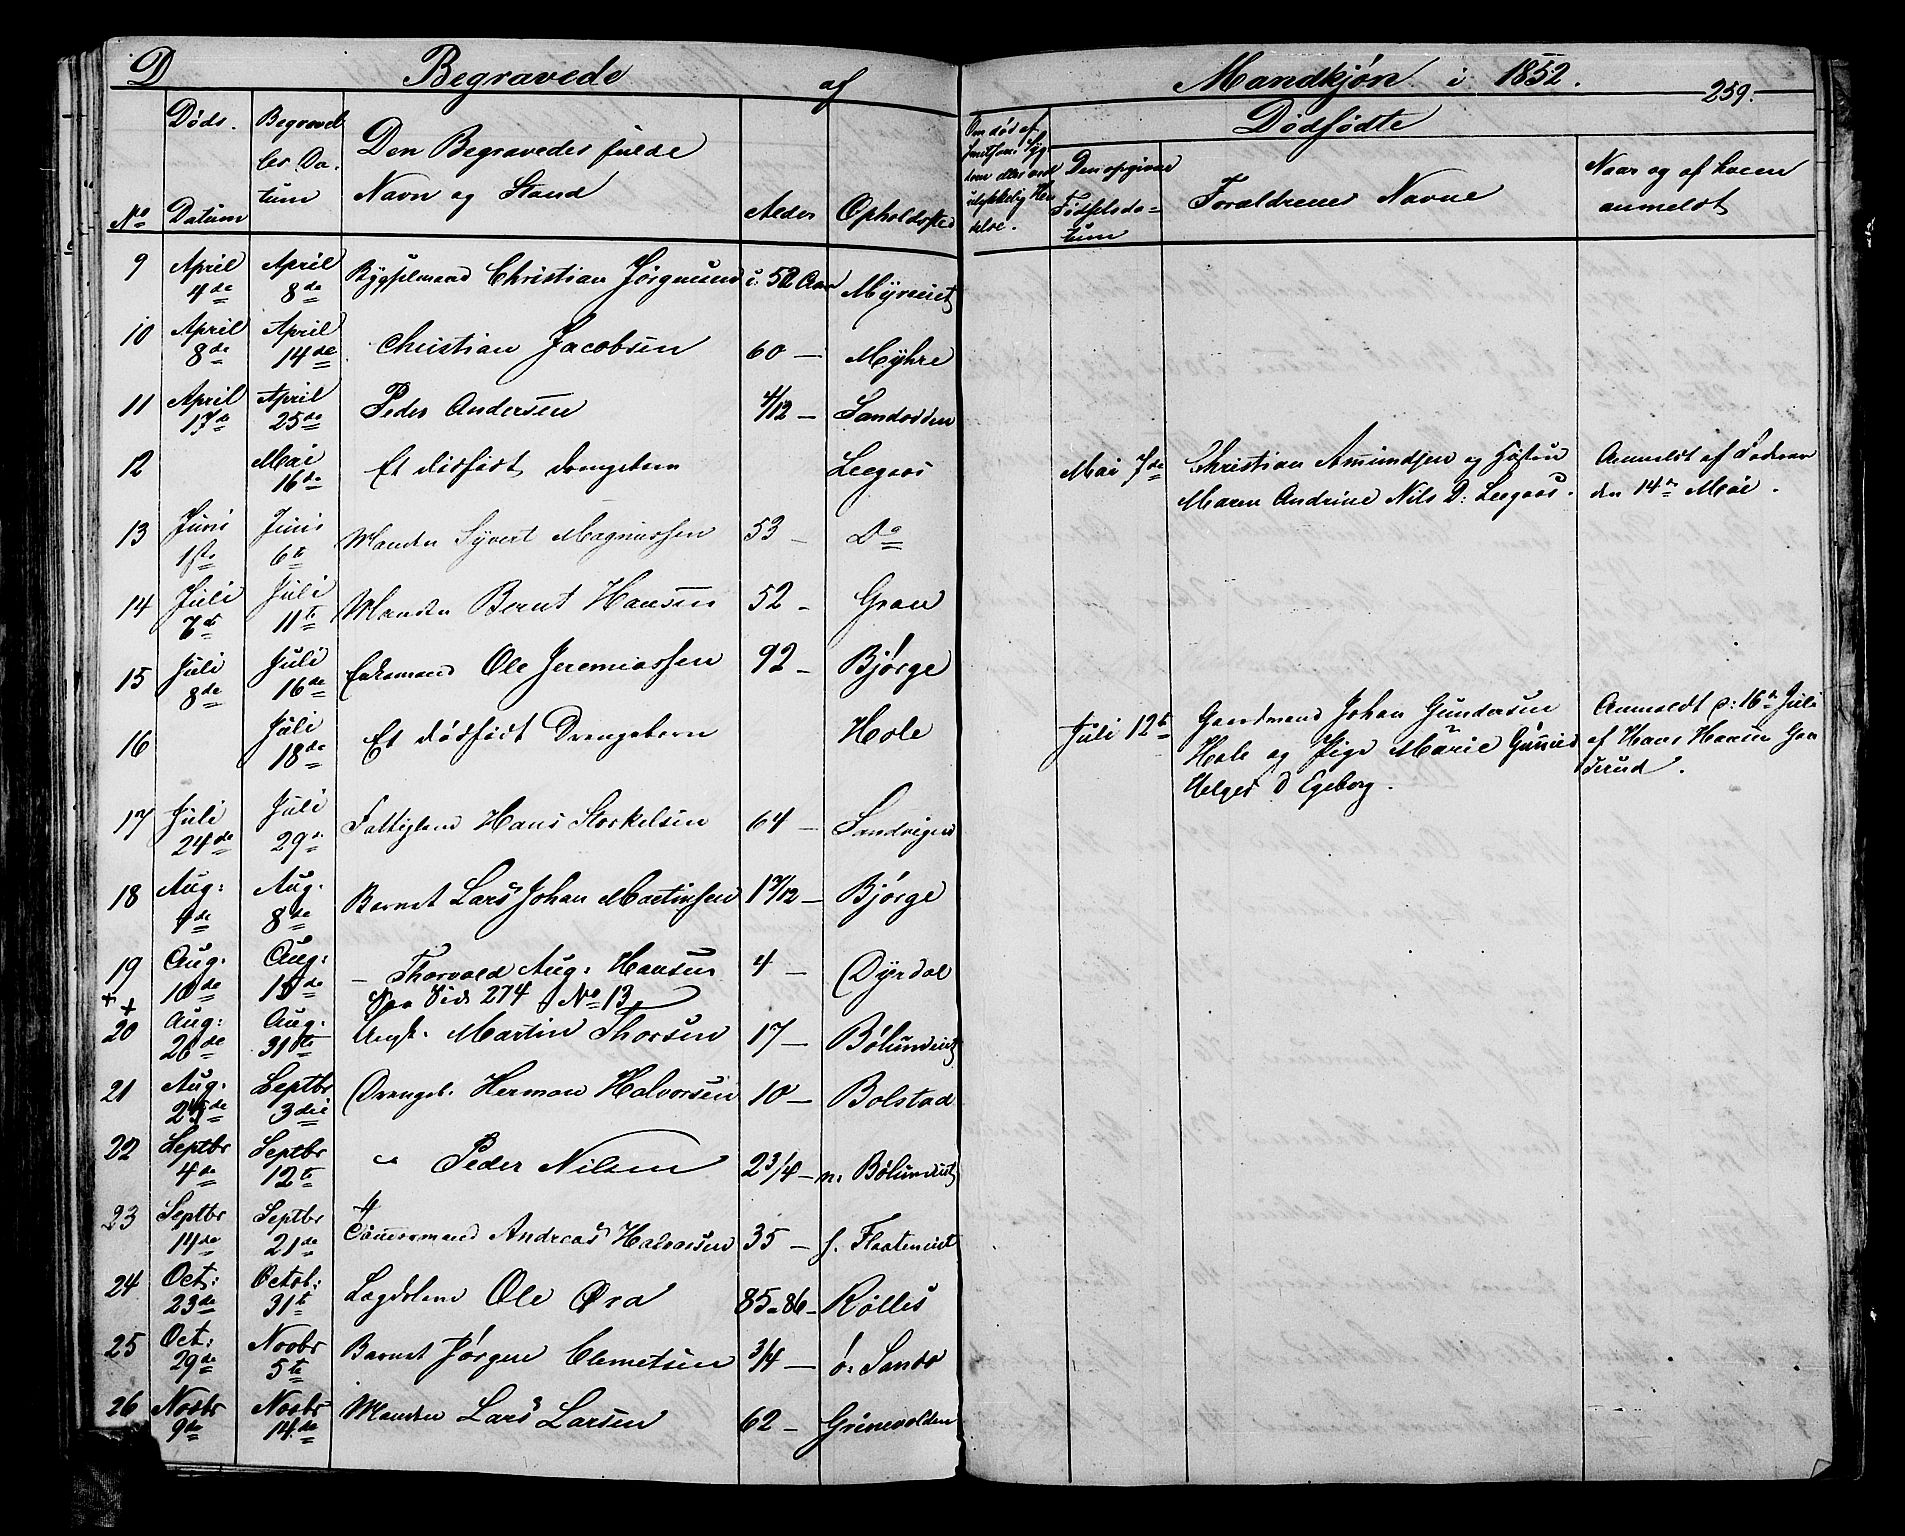 D Begravede af Mandkjøn i 1852. 259.
No Døds Datum Begravelses Datum Den Begravedes fulde Navn og Stand Alder Opholdssted
Dødfødte
Den opgivne Fødselsdatum Forældrenes Navne Naar og af hvem anmeldt
9 April 4de April 8de Christian Jørgensen 52 Aar Myreiet
10 April 8de April 14de Christian Jacobsen 60 — Myhre
11 April 17de April 25de Peder Andersen 4/12 — Sandodden
12 Mai 16de Et dødfødt Drengebarn Leegaos Mai 7de Christian Amundsen og Hustru Anmeldt af Faderen
Maren Andrine Nils D: Leegaos. den 14de Mai.
13 Juni 1ste Juni 6te Manden Syvert Magnussen 53 — Do
14 Juli 7de Juli 11te Manden Bernt Hansen 52 — Gran
15 Juli 8de Juli 16de Enkemand Ole Jeremiassen 92 — Bjørge
16 Juli 18de Et dødfødt Drengebarn Hole Juli 12te Gaardmand Johan Gundersen Anmeldt d: 16de Juli
Hole og Pige Marie Gunild af Hans Hansen
Helges D Egeborg.
17 Juli 24de Juli 29de Fattiglem Hans Storkelsen 64 — Sandvigen
18 Aug: Aug. 8de Barnet Lars Johan Martinsen Bjørge
19 Aug: 10de Aug: 15de — Thorvald Aug: Hansen 4 — Dyrdal
++ Side 274 No 13
20 Aug: 26de Aug: 31te Ungk. Martin Thorsen 17 — Bølumeiet
21 Aug. 25de Septbr 3die Drengeb. Herman Halvorsen 10 — Bolstad
22 Septbr 4de Septbr 12te " Peder Nilsen 2 3/4 — n. Bølumeiet
23 Septbr 14de Septbr 21de Andreas Halvorsen 35 — f. Flaateneiet
24 Oct: 23de Octob: 31te Lægdslem Ole Øra 85 a 86 — Rølles
25 Oct: 29de Novbr 5te Barnet Jørgen Clemetsen 3/4 — ø: Sando
26 Novbr 9de Novbr 14de Manden Lars Larsen 62 — Grinevolden